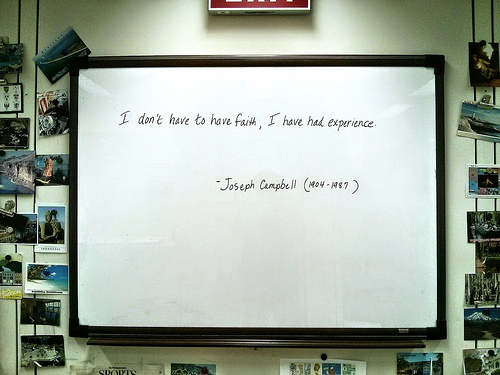 I don't have to have faith, I have had experience.
-Joseph Campbell (1904-1987)
SPORTS